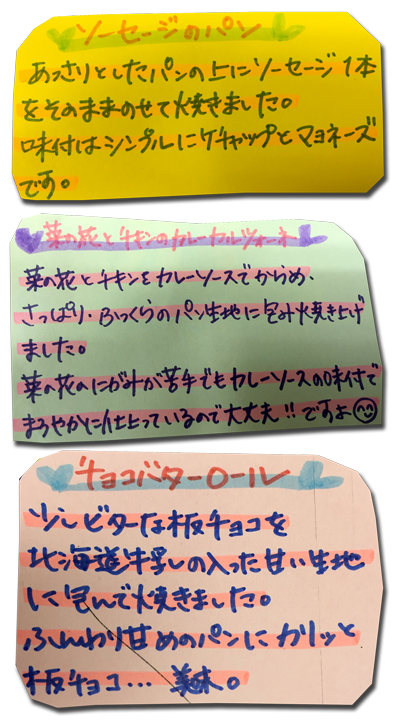 ソーセージのパン
あっさりとしたパンの上にソーセージ1本
をそのままのせて焼きました。
味付はシンプルにケチャップとマヨネーズ
です。
菜の花とチキンのカレーカルツォーネ
菜の花とチキンをカレーソースでからめ、
さっぱり・ふっくらのパン生地に包み焼き上げ
ました。
菜の花のにがみが苦手でもカレーソースの味付で
まろやかに仕上っているので大丈夫!!ですよ
チョコバターロール
少しビターな板チョコを
北海道牛乳の入った甘い生地
に包んで焼きました。
ふんわり甘めのパンにカリッと
板チョコ… 美味。